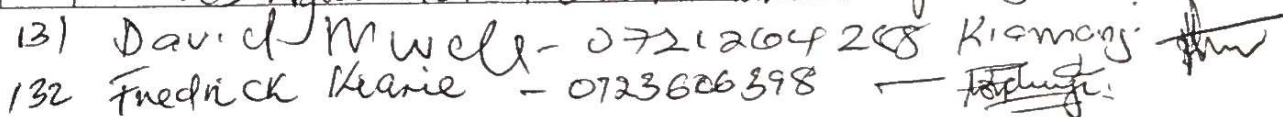 131 David Mwela - 0721204268 Kiamanj.
132 Fredrick Kearie - 0723606398 -